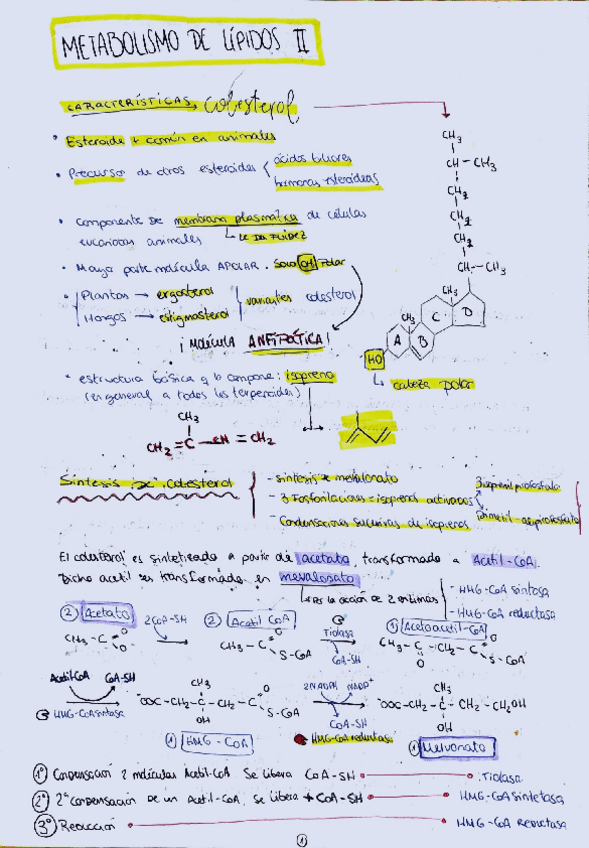 METABOLISMO DE LÍPIDOS II
CARACTERÍSTICAS, colesterol
• Esteroide + común en animales
• Precursor de otros esteroides { ácidos biliares
hormonas esteroideas
• Componente de membrana plasmática de células
eucariotas animales
LE DA FLUIDEZ
• Mayor parte molécula APOLAR. Solo OH Polar
• Plantas → ergosterol
Hongos → estigmasterol
variantes colesterol
¡Molécula ANFIPÁTICA!
CH3
CH - CH3
CH2
CH2
CH2
CH - CH3
CH3
CH3
A B C D
HO
cabeza polar
• estructura básica q lo compone: isopreno
(en general a todos los terpenoides)
CH3
CH2 = C - CH = CH2
Síntesis de colesterol
- síntesis de mevalonato
- 3 Fosforilaciones = isoprenos activados
- Condensaciones sucesivas de isoprenos
El colesterol es sintetizado a partir de acetato, transformado a Acetil-CoA.
Dicho acetil es transformado en mevalonato
Por la acción de 2 enzimas
- HMG-CoA sintasa
- HMG-CoA reductasa
② Acetato
2CoA-SH
② Acetil CoA
Tiolasa
CoA-SH
① Acetoacetil-CoA
CH3-C O O-
CH3-C O S-CoA
CH3-C-CH2-C O S-CoA
O
Acetil-CoA CoA-SH
HMG-CoA sintasa
CH3
-OOC-CH2-C-CH2-C O S-CoA
OH
① HMG-CoA
2NADPH NADP+
CoA-SH
HMG-CoA reductasa
CH3
-OOC-CH2-C-CH2-CH2OH
OH
① Melvonato
1º Condensación 2 moléculas Acetil-CoA Se libera CoA-SH Tiolasa
2º 2ª condensación de un Acetil-CoA. Se libera + CoA-SH HMG-CoA Sintetasa
3º Reacción HMG-CoA Reductasa
1